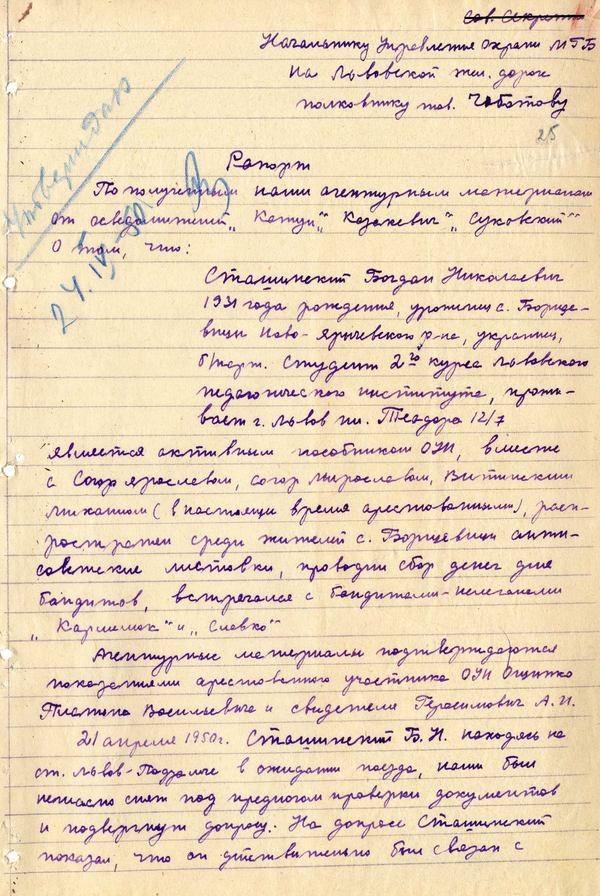 Сов. Секретно
Начальнику Управления охраны МГБ
на Львовской жел. дороге
полковнику тов. Чеботову
25
Утверждаю
24.IV-50.
Рапорт
По полученным нами агентурным материалам
от осведомителей „Кетуи" „Казакевич" „Суковский"
о том, что:
Сташинский Богдан Николаевич
1931 года рождения, уроженец с. Борще-
вици Ново-Яричевского р-на, украинец,
б/парт. Студент 2го курса Львовского
педагогического института, прожи-
вает г. Львов пл. Теодора 12/7
является активным пособником ОУН, вместе
с Согор Ярославом, Согор Мирославом, Витинским
Михаилом (в настоящи время арестованными), расп-
ространял среди жителей с. Борщевици анти-
советские листовки, проводил сбор денег для
бандитов, встречался с бандитами-нелегалами
„Кармелюк" и „Славко"
Агентурные материалы подтверждаются
показаниями арестованного участника ОУН Ощипко
Платона Васильевича и свидетеля Герасимович А.И.
21 апреля 1950г. Сташинский Б.Н. находясь на
ст. Львов-Подзамче в ожидании поезда, нами был
негласно снят под предлогом проверки документов
и подвергнут допросу. На допросе Сташинский
показал, что он действительно был связан с